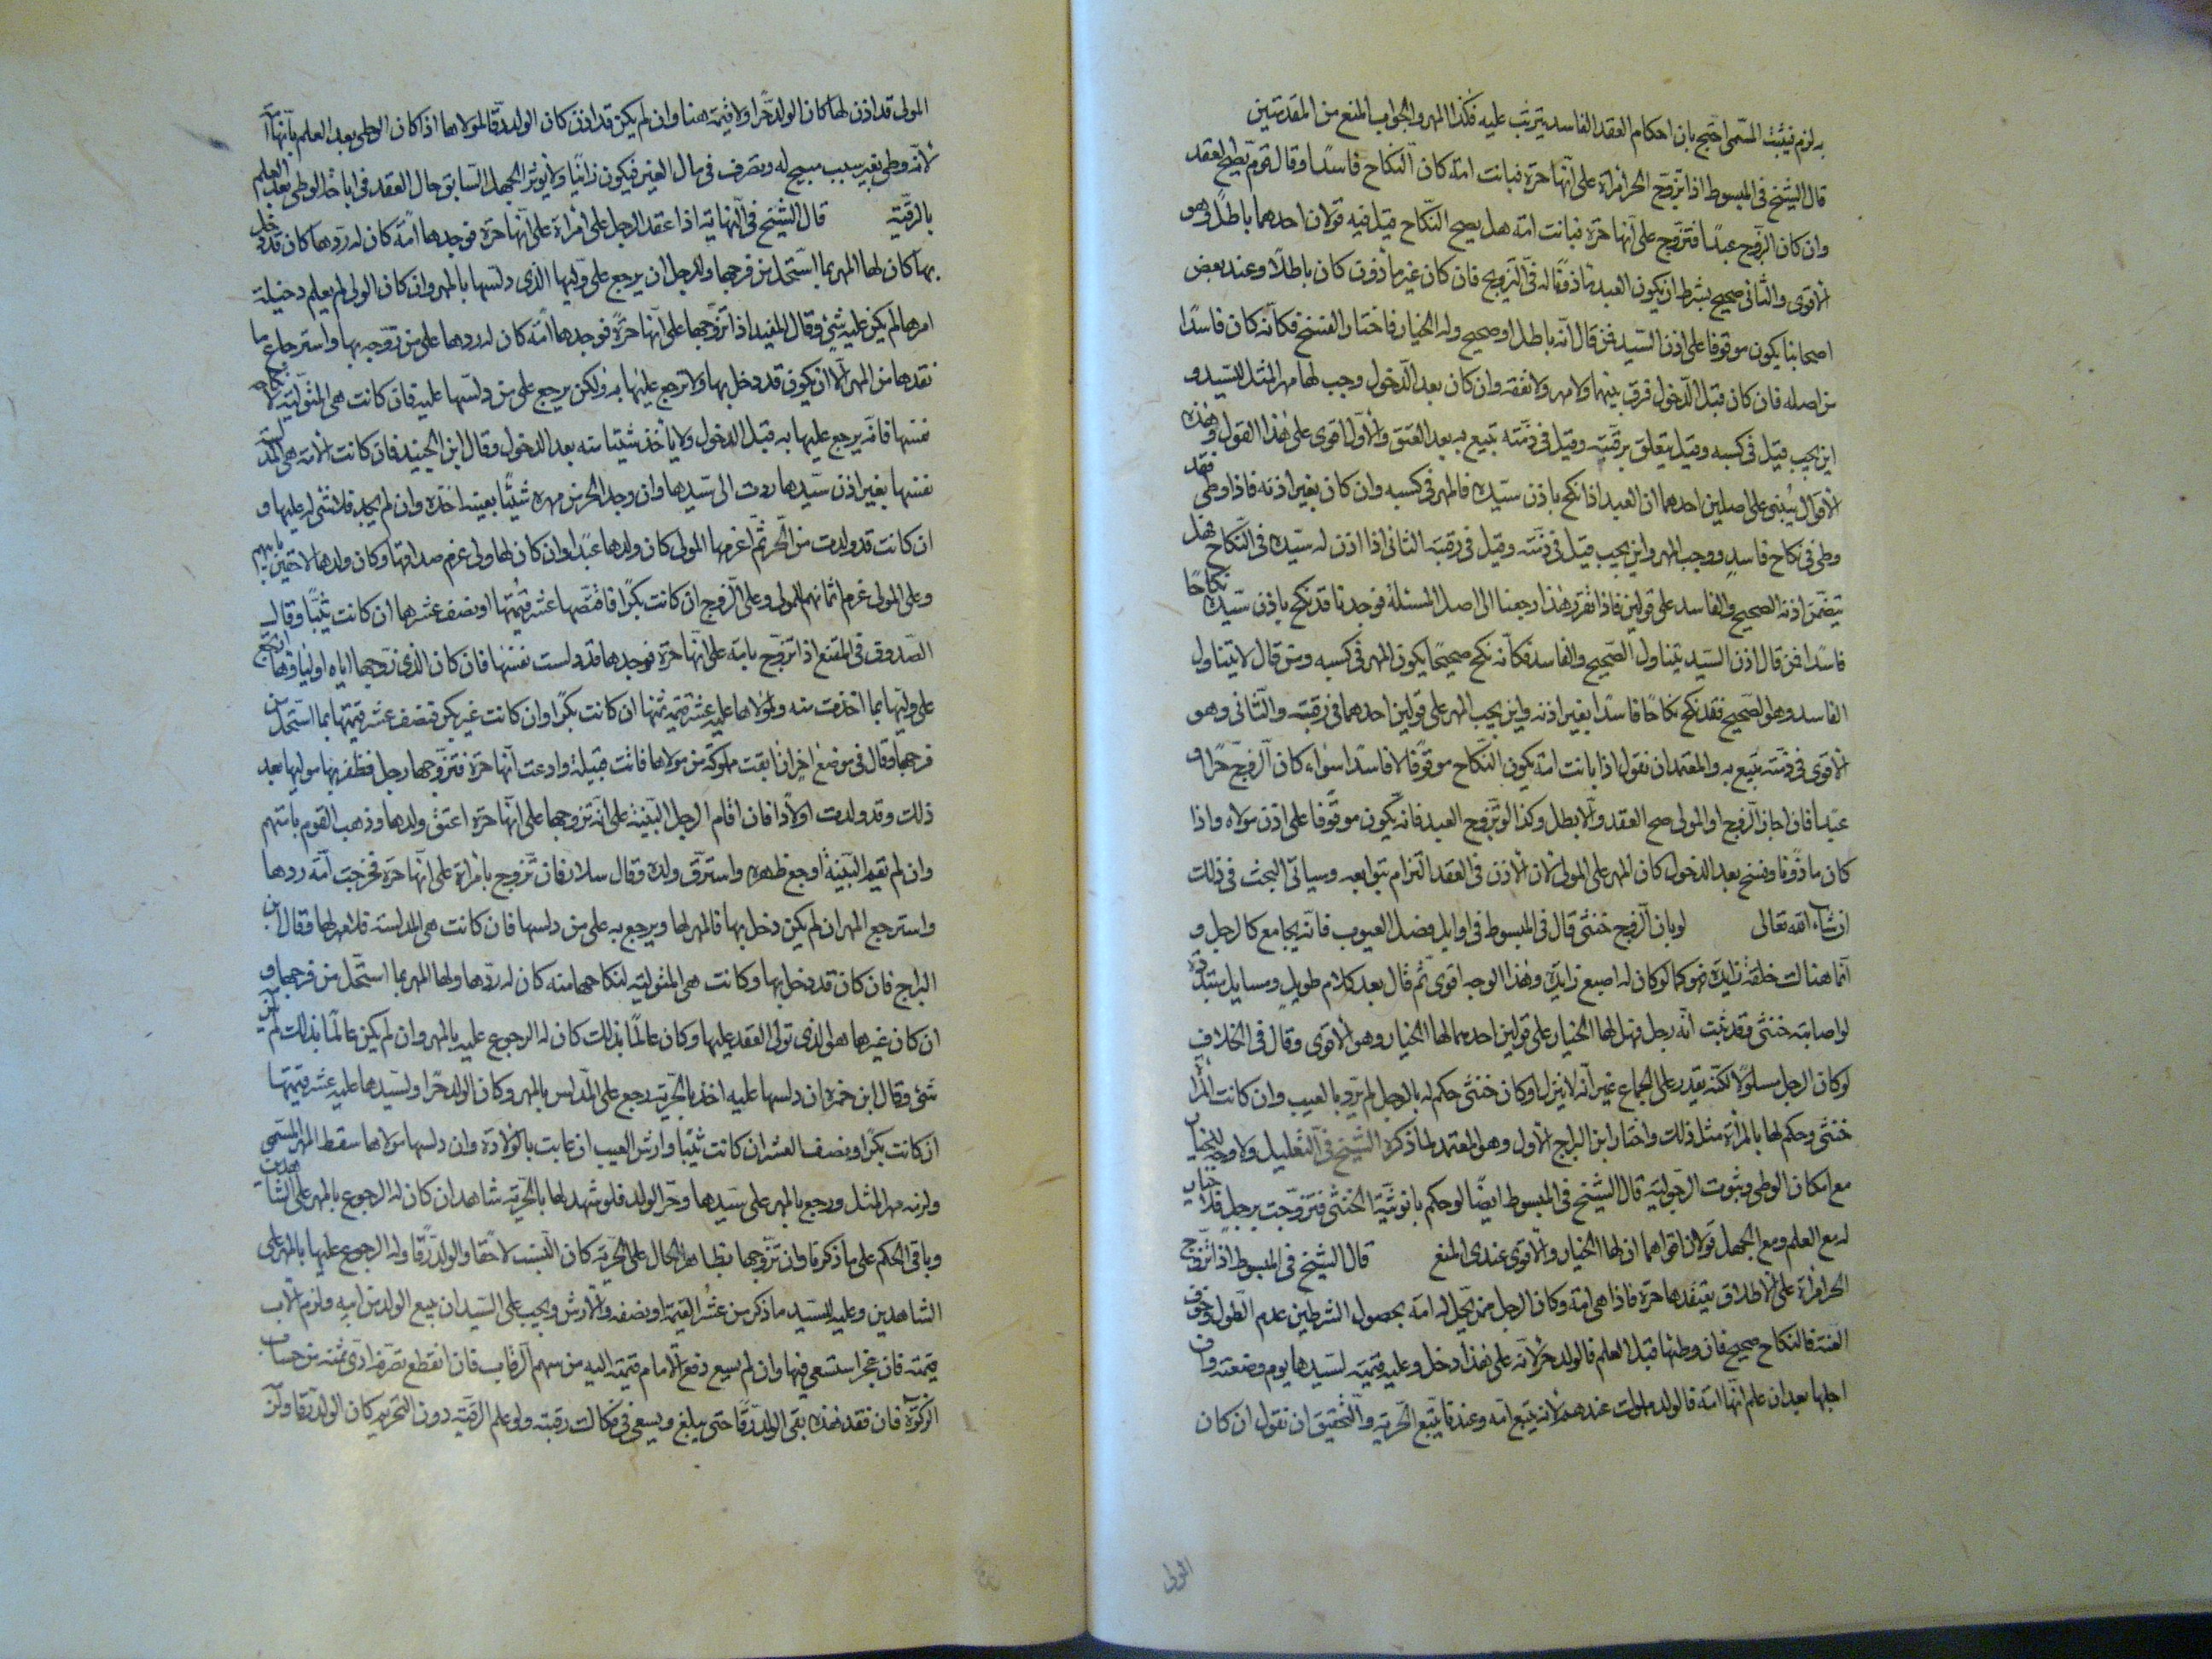 به لزم فيثبت المسمى احتج بان احكام العقد الفاسد يترتب عليه فكذا المهر والجواب المنع من المقدمتين
قال الشيخ فى المبسوط اذا تزوج الحر امراة على انها حرة فبانت امة كان النكاح فاسدا وقال قوم يصح العقد
وان كان الزوج عبدا فتزوج على انها حرة فبانت امة هل يصح النكاح قيل فيه قولان احدهما باطل وهو
الاقوى والثانى صحيح بشرط ان يكون العبد ماذونا له فى التزويج فان كان غير ماذون كان باطلا وعند بعض
اصحابنا يكون موقوفا على اذن السيد فمن قال انه باطل او صحيح وله الخيار فاختار الفسخ فكانه كان فاسدا
من اصله فان كان قبل الدخول فرق بينهما ولا مهر ولا نفقه وان كان بعد الدخول وجب لها مهر المثل للسيد و
اين يجب قيل فى كسبه وقيل يتعلق برقبته وقيل فى ذمته تبيع به بعد العتق والاول اقوى على هذا القول وهذه
الاقوال يبنى على اصلين احدهما ان العبد اذا نكح باذن سيده فالمهر فى كسبه وان كان بغير اذنه فاذا وطى فقد
وطى فى نكاح فاسد ووجب المهر واين يجب قيل فى ذمته وقيل فى رقبته الثانى اذا اذن له سيده فى النكاح فهل
يتضمن اذنه الصحيح والفاسد على قولين فاذا تقرر هذا رجعنا الى اصل المسئلة فوجدنا قد نكح باذن سيده نكاحا
فاسدا فمن قال اذن السيد يتناول الصحيح والفاسد فكانه نكح صحيحا يكون المهر فى كسبه ومن قال لا يتناول
الفاسد وهو الصحيح فقد نكح نكاحا فاسدا بغير اذنه واين يجب المهر على قولين احدهما فى رقبته والثانى وهو
الاقوى فى ذمته يتبع به والمعتمد ان نقول اذا بانت امة يكون النكاح موقوفا لا فاسدا سواء كان الزوج حرا او
عبدا فان اجاز الزوج او المولى صح العقد والا بطل وكذا لو تزوج العبد فانه يكون موقوفا على اذن مولاه واذا
كان ماذونا وفسخ بعد الدخول كان المهر على المولى لان الاذن فى العقد التزام بتوابعه وسياتى البحث فى ذلك
ان شاء الله تعالى لو بان الزوج خنثى قال فى المبسوط فى اوايل فصل العيوب فانه يجامع كالرجل و
انما هناك خلقة زايدة فهو كما لو كان له اصبع زايدة وهذا الوجه اقوى ثم قال بعد كلام طويل ومسايل متبددة
لو اصابته خنثى وقد ثبت انه رجل فهل لها الخيار على قولين احدهما لها الخيار وهو الاقوى وقال فى الخلاف
لو كان الرجل مسلولا لكنه يقدر على الجماع غير انه لا ينزل او كان خنثى حكم له بالرجل لم يرد بالعيب وان كانت المراة
خنثى وحكم لها بالمراة مثل ذلك واختار ابن البراج الاول وهو المعتمد لما ذكره الشيخ فى التعليل ولا وجه للخيار
مع امكان الوطى وثبوت الرجولية قال الشيخ فى المبسوط ايضا لو حكم بانوثية الخنثى فتزوجت برجل فلا خيار
له مع العلم ومع الجهل قولان اقواهما ان لها الخيار والاقوى عندى المنع قال الشيخ فى المبسوط اذا تزوج
الحر امراة على الاطلاق يعتقدها حرة فاذا هى امة وكان الرجل ممن يحل له امة بحصول الشرطين عدم الطول وخوف
العنة فالنكاح صحيح فان وطئها قبل العلم فالولد حر لانه على هذا دخل وعليه قيمته لسيدها يوم وضعته وان
احبلها بعد ان علم انها امة فالولد مملوك عندهم لانه يتبع امه وعندنا يتبع الحرية والتحقيق ان نقول ان كان
المولى
المولى قد اذن لها كان الولد حرا ولا قيمة هنا وان لم يكن قد اذن كان الولد رقا لمولاها اذا كان الوطى بعد العلم بانها امة
لانه وطى بغير سبب مبيح له وتصرف فى مال الغير فيكون زانيا ولا يوثر الجهل السابق حال العقد فى اباحة الوطى بعد العلم
بالرقية قال الشيخ فى النهاية اذا عقد الرجل على امراة على انها حرة فوجدها امة كان له ردها فان كان قد دخل
بها كان لها المهر بما استحل من فرجها وللرجل ان يرجع على وليها الذى دلسها بالمهر وان كان الولى لم يعلم دخيلة
امرها لم يكن عليه شئ وقال المفيد اذا تزوجها على انها حرة فوجدها امة كان له ردها على من زوجه بها واسترجاع ما
نقدها من المهر الا ان يكون قد دخل بها ولا ترجع عليها به ولكن يرجع على من دلسها عليه فان كانت هى المتولية لانكاح
نفسها فانه يرجع عليها به قبل الدخول ولا ياخذ شيئا منه بعد الدخول وقال ابن الجنيد فان كانت الامة هى المدلسة
نفسها بغير اذن سيدها ردت الى سيدها وان وجد الحر من مهره شيئا بعينه اخذه وان لم يجد فلا شى له عليها و
ان كانت قد ولدت من الحر ثم اغرمها المولى كان ولدها عبدا وان كان لها ولى غرم صداقها وكان ولدها لاحقين بابيهم
وعلى المولى غرم اثمانهم للمولى وعلى الزوج ان كانت بكرا فافتضها عشر قيمتها او نصف عشرها ان كانت ثيبا وقال
الصدوق فى المقنع اذا تزوج بامة على انها حرة فوجدها قد دلست نفسها فان كان الذى زوجها اياه اولياوها ارتجع
على وليها بما اخذت منه ولمولاها عليه عشر قيمة ثمنها ان كانت بكرا وان كانت غير بكر فنصف عشر قيمتها بما استحل من
فرجها وقال فى موضع اخر ان ابقت مملوكة من مولاها فاتت قبيلة وادعت انها حرة فتزوجها رجل فظفر بها مولها بعد
ذلك وقد ولدت اولادا فان اقام الرجل البينة على انه تزوجها على انها حرة اعتق ولدها وذهب القوم بامتهم
وان لم يقم البينة اوجع ظهره واسترق ولده وقال سلار فان تزوج بامراة على انها حرة فخرجت امة ردها
واسترجع المهر ان لم يكن دخل بها فالمهر لها ويرجع به على من دلسها فان كانت هى المدلسة فلا مهر لها وقال ابن
البراج فان كان قد دخل بها وكانت هى المتولية لنكاحها منه كان له ردها ولها المهر بما استحل من فرجها و
ان كان غيرها هو الذى تولى العقد عليها وكان عالما بذلك كان له الرجوع عليه بالمهر وان لم يكن عالما بذلك لم يكن عليه
شئ وقال ابن حمزة ان دلسها عليه احد بالحرية رجع على المدلس بالمهر وكان الولد حرا ولسيدها عليه عشر قيمتها
ان كانت بكرا ونصف العشر ان كانت ثيبا وارش العيب ان عابت بالولادة وان دلسها مولاها سقط المهر المسمى
ولزمه مهر المثل ورجع بالمهر على سيدها وحر الولد فلو شهد لها بالحرية شاهدان كان له الرجوع بالمهر على الشاهدين
وباقى الحكم على ما ذكرنا وان تزوجها بظاهر الحال على الحرية كان النسب لاحقا والولد رقا وله الرجوع عليها بالمهر على
الشاهدين وعليه للسيد ما ذكر من عشر القيمة او نصفه والارش ويجب على السيد ان يبيع الولد من ابيه ولزم الاب
قيمته فان عجز استسعى فيها وان لم يسع دفع الامام قيمته اليه من سهم الرقاب فان انقطع تصرفه ادى ثمنه من حساب
الزكوة فان فقد هذه بقى الولد رقا حتى يبلغ ويسعى فى فكاك رقبته ولو علم الرقية دون التحريم كان الولد رقا ولزم